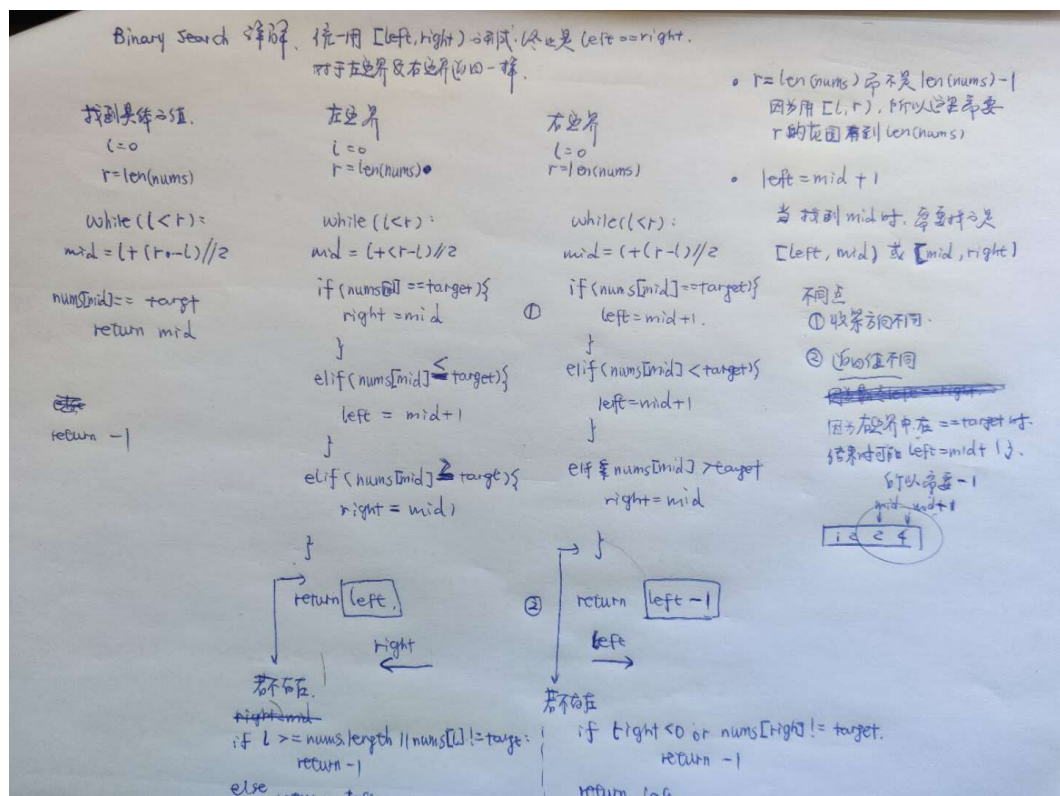 Binary Search 详解. 统一用 [left,right) 的形式. 终止是 left==right.
对于左边界及右边界返回一样.
找到具体的值.
l=0
r=len(nums)
while(l<r):
mid=l+(r-l)//2
nums[mid]== targt
return mid
return -1
左边界
l=0
r=len(nums)
while(l<r):
mid=l+(r-l)//2
if(nums[mid]==target){
right=mid
}
elif(nums[mid]<target){
left = mid+1
}
elif(nums[mid]>targt){
right = mid)
}
return left.
right
若不存在.
if l >= nums.length || nums[l] != targt:
return -1
else
右边界
l=0
r=len(nums)
while(l<r):
mid=l+(r-l)//2
① if(nums[mid]==target){
left=mid+1.
}
elif(nums[mid]<target){
left=mid+1
}
elif nums[mid]>target
right=mid
}
② return left-1
left
若不存在
if right<0 or nums[right] != target.
return -1
return
• r=len(nums) 而不是 len(nums)-1
因为用 [l,r), 所以这里需要
r 的范围看到 len(nums)
• left=mid+1
当找到 mid 时. 需要找的是
[left, mid) 或 [mid, right)
不同点
① 收紧方向不同.
② 返回值不同
因为右边界中.在 ==target 时.
结果时可能 left=mid+1
所以需要-1
mid mid+1
1 2 2 4